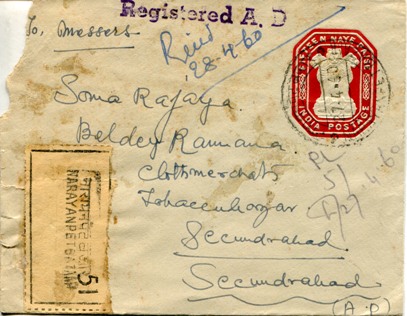 Registered A. D
To, Messers
Recd
28-4-60
FIFTEEN NAYE PAISE
INDIA POSTAGE
Soma Rajaya
Beldey Ramana
Clothmerchats
Tobaccubazar
Secundrabad
Secundrabad
(A.P)
51
27.4.60
NARAYANPET
51